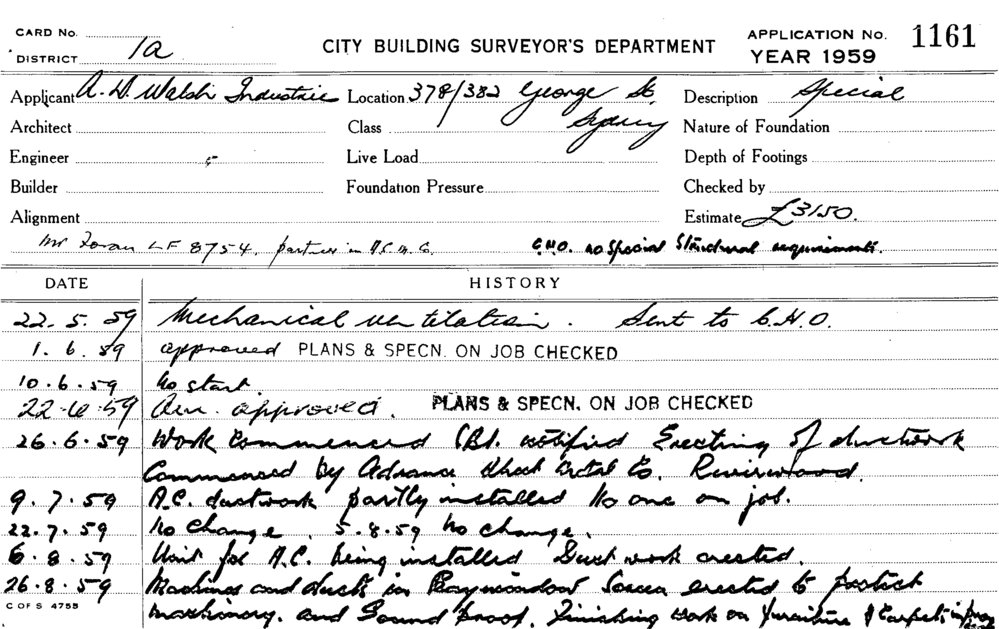 CARD No.
DISTRICT 1a
CITY BUILDING SURVEYOR'S DEPARTMENT
APPLICATION No. 1161
YEAR 1959
Applicant A. D. Walsh Industries Location 378/382 George St, Description Special
Architect Class Sydney Nature of Foundation
Engineer Live Load Depth of Footings
Builder Foundation Pressure Checked by
Alignment Estimate £3150.
Mr Foran LF 8754. partner in C.H.O. no special structural requirements.
DATE HISTORY
22.5.59 Mechanical ventilation. Sent to C.H.O.
1.6.59 approved PLANS & SPECN. ON JOB CHECKED
10.6.59 No start.
22.6.59 Am. approved. PLANS & SPECN. ON JOB CHECKED
26.6.59 Work Commenced notified Erecting of ductwork
Commenced by Advance Sheet Metal Co. Riverwood.
9.7.59 A.C. ductwork partly installed No one on job.
22.7.59 No change. 5.8.59 No change.
6.8.59 Unit for A.C. being installed Duct work erected.
26.8.59 Machines and ducts in Baywindow Screen erected to protect
machinery. and Sound proof. Finishing work on furniture & Carpets in
C OF S 4755